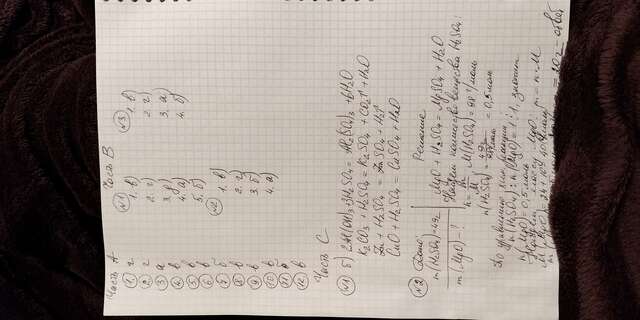 Часть А
1 г
2 г
3 а
4 в
5 в
6 б
7 б
8 в
9 в
10 в
11
12 в
Часть В
№1
1. в)
2. г)
3. в)
4. а)
5. б)
№2
1. в)
2. г)
3. б)
4. а)
№3
1. в)
2. г)
3. а)
4. б)
Часть С
№1 б) 2Al(OH)3+3H2SO4=Al2(SO4)3+6H2O
K2CO3+H2SO4=K2SO4+CO2↑+H2O
Zn+H2SO4=ZnSO4+H2↑
CuO+H2SO4=CuSO4+H2O
№2 Дано:
m(H2SO4)=49г
m(MgO)-?
Решение
MgO+H2SO4=MgSO4+H2O
Найдем количество вещества H2SO4:
n=m/M M(H2SO4)=98г/моль
n(H2SO4)=49г/98г/моль=0,5моль
По уравнению хим. реакции
n(H2SO4):n(MgO)=1:1, значит
n(MgO)=0,5моль
MgO m=n·M
=20г - ответ